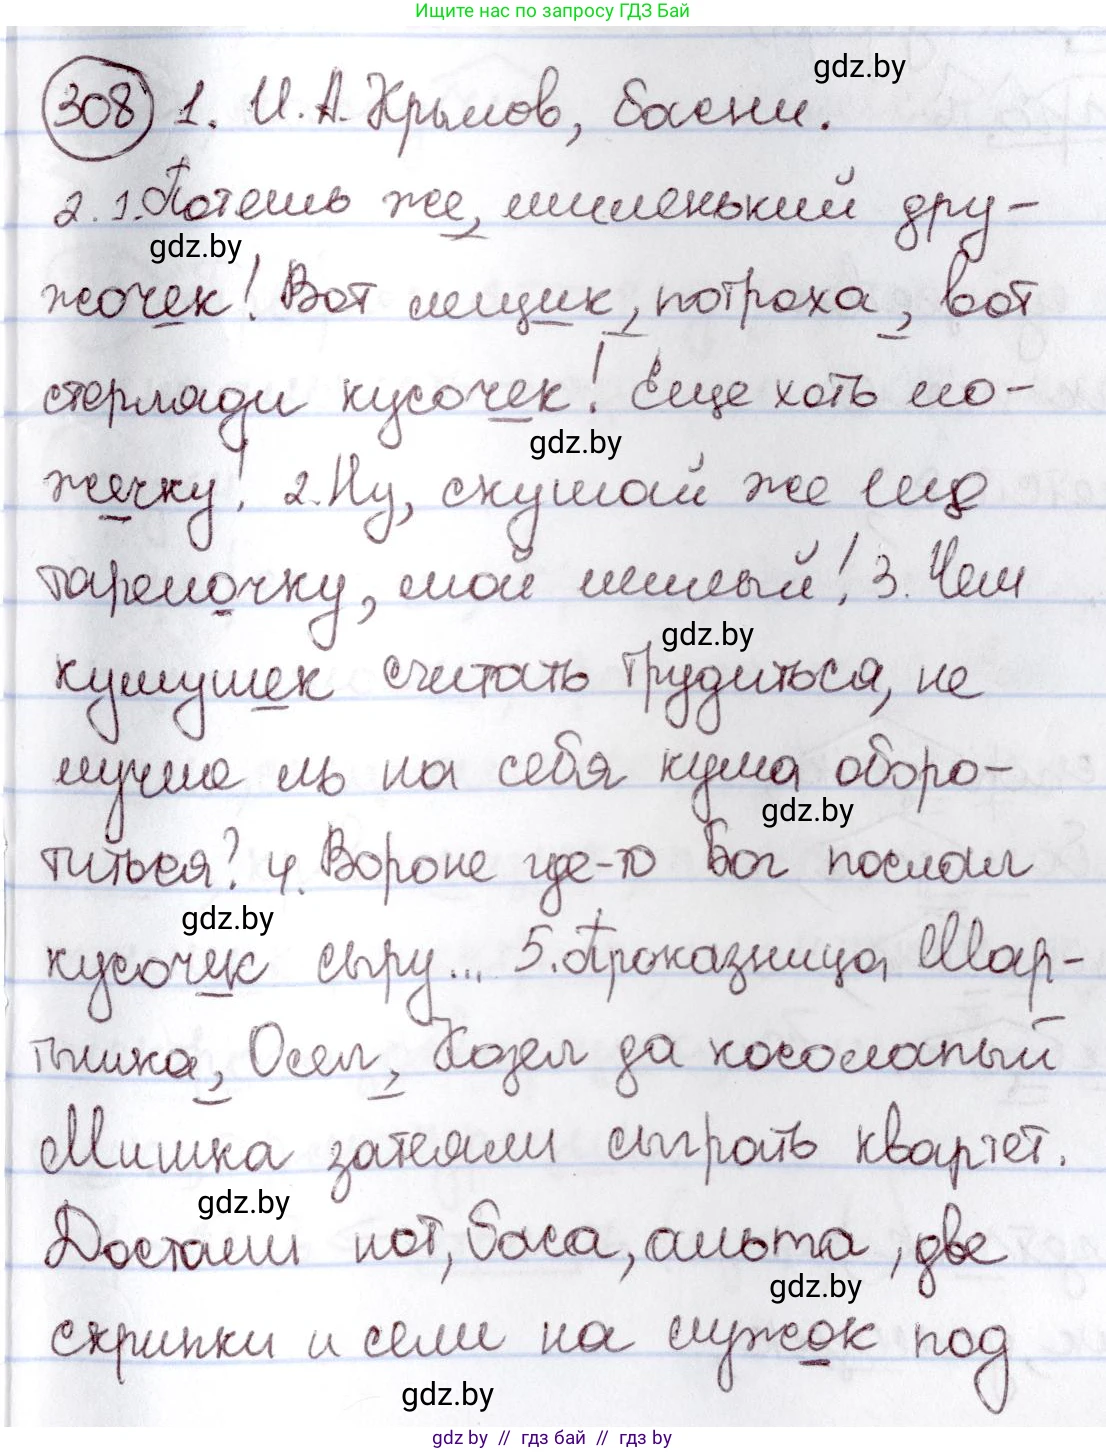 Ищите нас по запросу ГДЗ Бай
gdz.by
308 1. И. А. Крылов, басни.
2. 1. Потешь же, миленький дру-
gdz.by
жочек! Вот лещик, потроха, вот
стерляди кусочек! Еще хоть ло-
gdz.by
жечку! 2. Ну, скушай же еще
тарелочку, мой милый! 3. Чем
gdz.by
кумушек считать трудиться, не
лучше ль на себя кума оборо-
gdz.by
титься? 4. Вороне где-то Бог послал
gdz.by
кусочек сыру... 5. Проказница, Мар-
тышка, Осел, Козел да косолапый
Мишка затеяли сыграть квартет.
gdz.by
Достали нот, баса, альта, две
gdz.by
скрипки и сели на лужок под
gdz.by
gdz by // гдз бай // гдз by